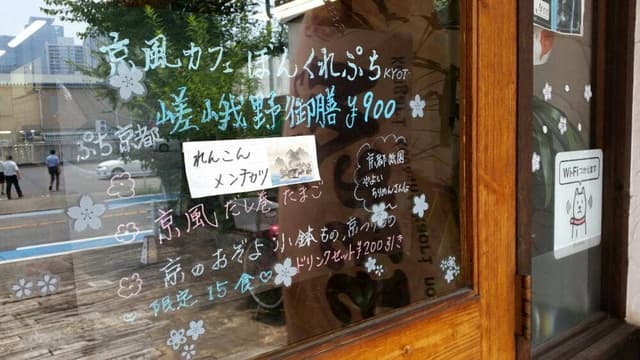 京風カフェ ぼんくれぷち KYOT
嵯峨野御膳 ¥900
ぷち京都
れんこん
メンチカツ
京都祇園
やよい
ちりめんさんしょ
京風だし巻たまご
京のおぞよ 小鉢もの 京つけもの
ドリンクセット¥200引き
限定15食♡
Wi-Fiつかえます